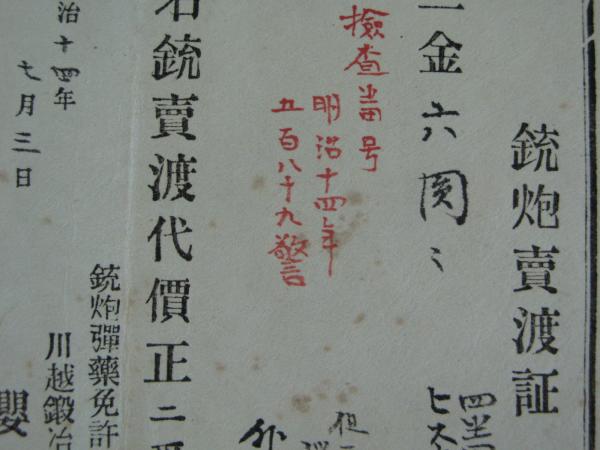 銃炮賣渡証
四半
ヒス
一金六圓〻
但
檢査畨号
明治十四年
五百八十九警
外
右銃賣渡代價正ニ
銃炮彈藥免許
川越鍛冶
櫻
治十四年
七月三日